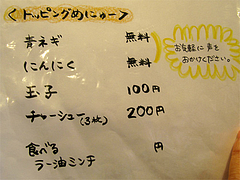 <トッピングめにゅー>
青ネギ 無料
にんにく 無料
お気軽に声を
おかけください。
玉子 100円
チャーシュー(3枚) 200円
食べる
ラー油ミンチ 円